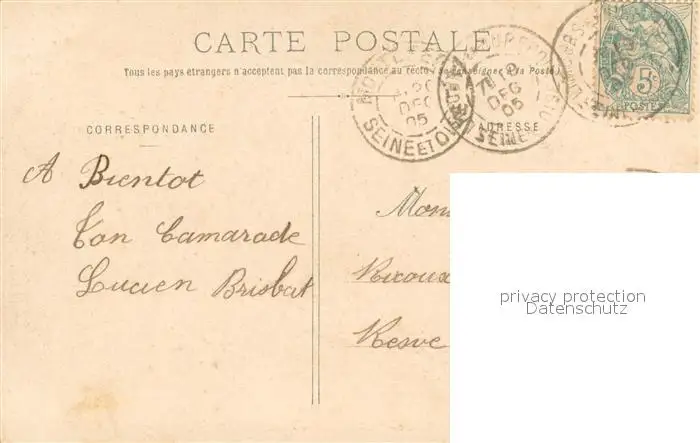 CARTE POSTALE
Tous les pays étrangers n'acceptent pas la correspondance au recto (se renseigner à la Poste)
DEC
05
SEINE ET OISE
19
DEC
05
SEINE
5c
POSTES
CORRESPONDANCE
ADRESSE
A Bientot
Ton Camarade
Lucien Brisbat
Mon
Ricoux
privacy protection
Datenschutz